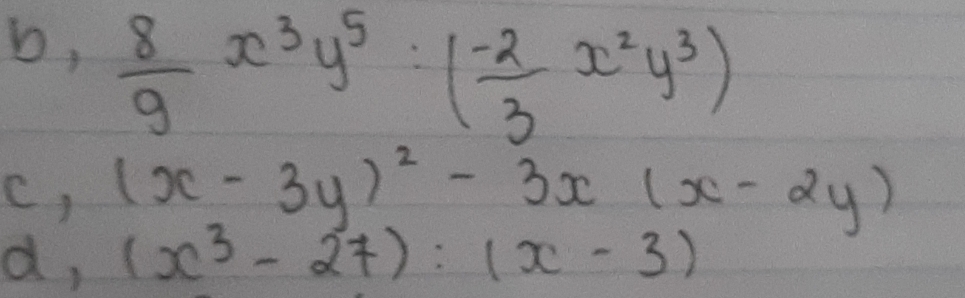 b, 8/9 x³y⁵ : (-2/3 x²y³)
c, (x - 3y)² - 3x (x - 2y)
d, (x³ - 27) : (x - 3)